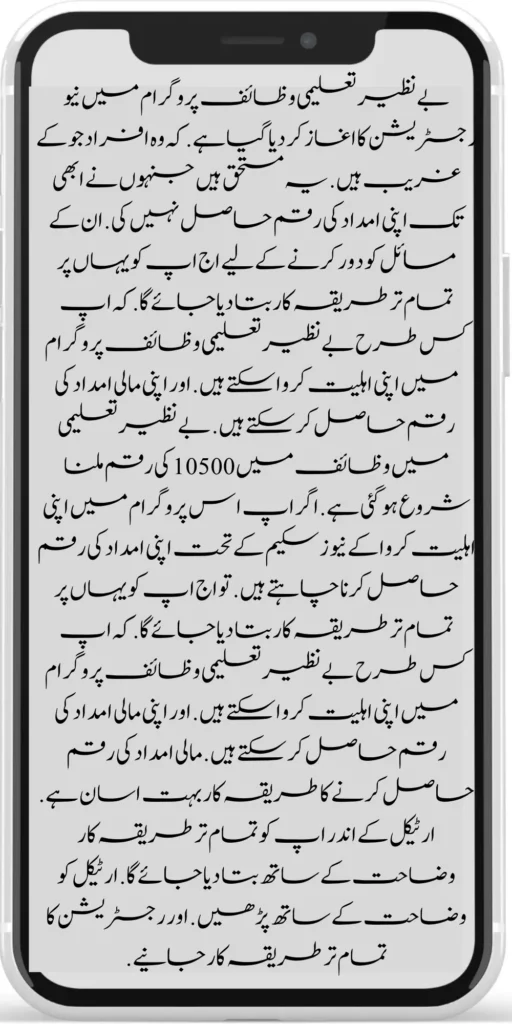 بے نظیر تعلیمی وظائف پروگرام میں نیو
رجسٹریشن کا اغاز کر دیا گیا ہے. کہ وہ افراد جو کے
غریب ہیں. یہ مستحق ہیں جنہوں نے ابھی
تک اپنی امداد کی رقم حاصل نہیں کی. ان کے
مسائل کو دور کرنے کے لیے اج اپ کو یہاں پر
تمام تر طریقہ کار بتا دیا جائے گا. کہ اپ
کس طرح بے نظیر تعلیمی وظائف پروگرام
میں اپنی اہلیت کروا سکتے ہیں. اور اپنی مالی امداد کی
رقم حاصل کر سکتے ہیں. بے نظیر تعلیمی
میں وظائف میں 10500 کی رقم ملنا
شروع ہو گئی ہے. اگر اپ اس پروگرام میں اپنی
اہلیت کروا کے نیوز سکیم کے تحت اپنی امداد کی رقم
حاصل کرنا چاہتے ہیں. تو اج اپ کو یہاں پر
تمام تر طریقہ کار بتا دیا جائے گا. کہ اپ
کس طرح بے نظیر تعلیمی وظائف پروگرام
میں اپنی اہلیت کروا سکتے ہیں. اور اپنی مالی امداد کی
رقم حاصل کر سکتے ہیں. مالی امداد کی رقم
حاصل کرنے کا طریقہ کار بہت اسان ہے.
ارٹیکل کے اندر اپ کو تمام تر طریقہ کار
وضاحت کے ساتھ بتا دیا جائے گا. ارٹیکل کو
وضاحت کے ساتھ پڑھیں. اور رجسٹریشن کا
تمام تر طریقہ کار جانیے.